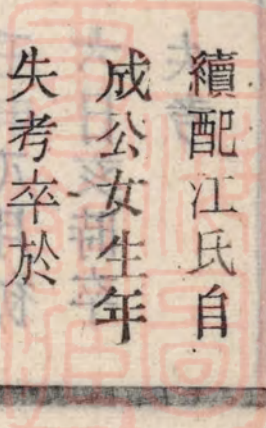 續配江氏自
成公女生年
失考卒於